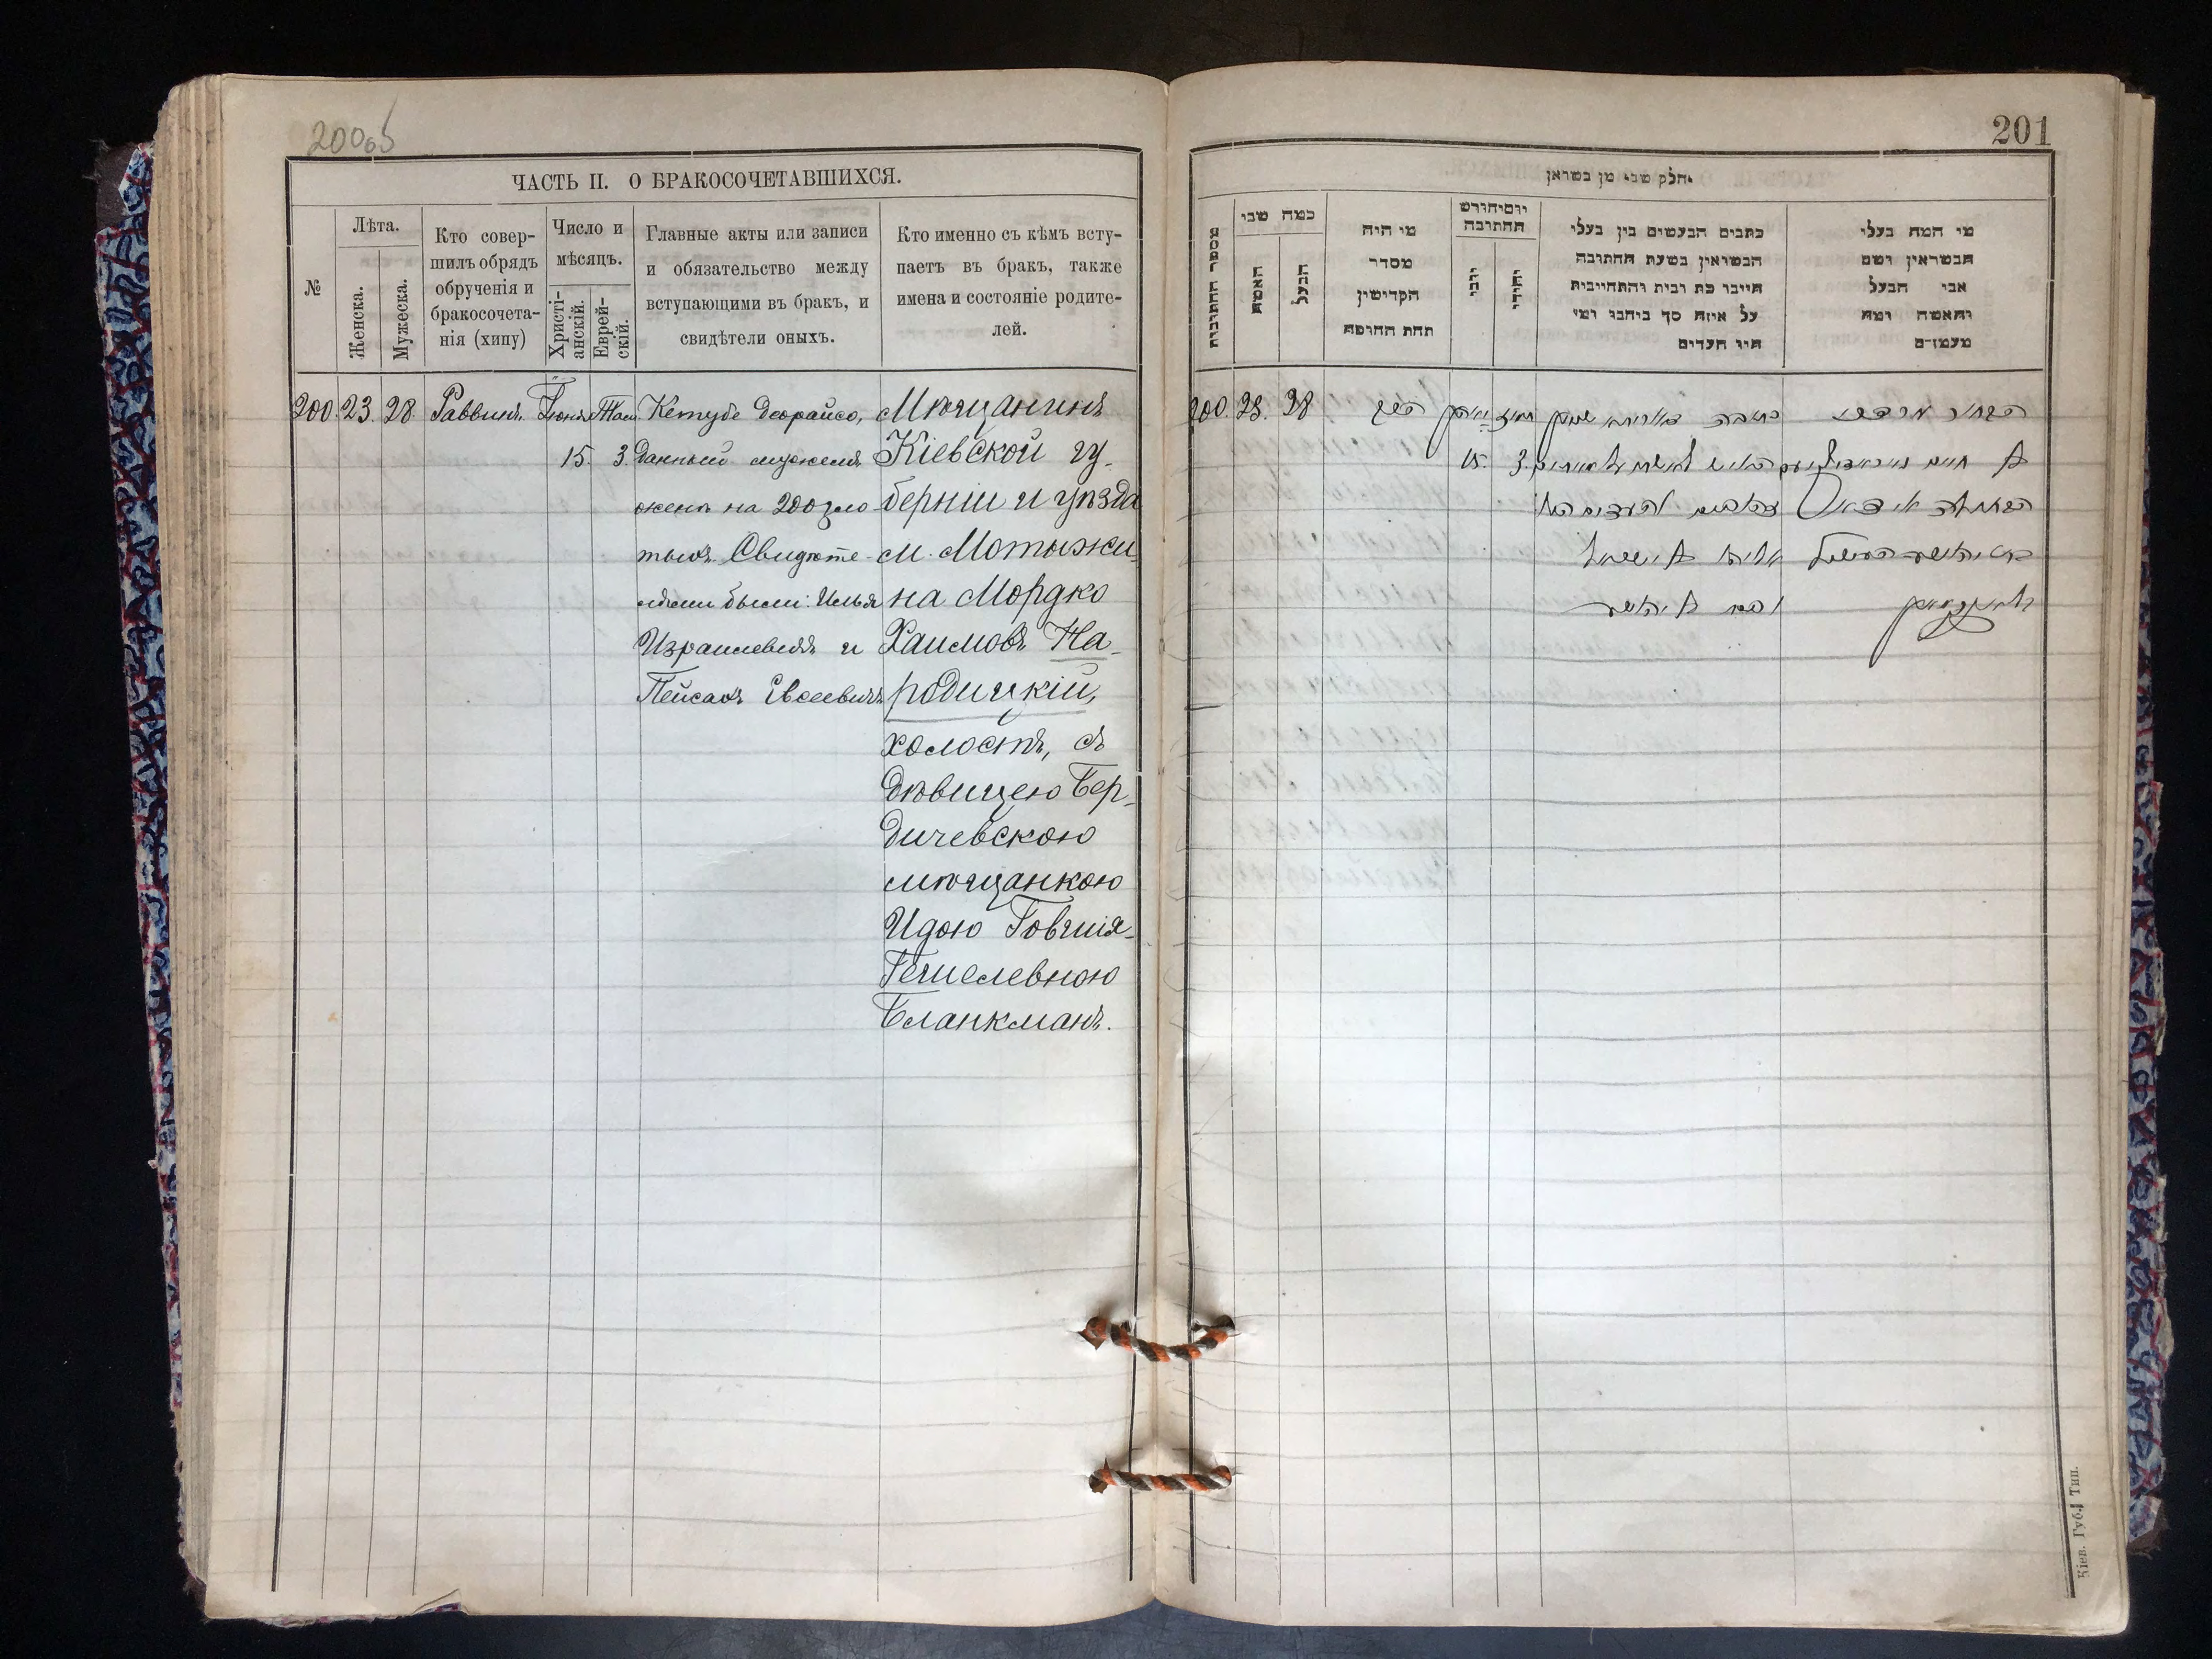 200об
ЧАСТЬ II. О БРАКОСОЧЕТАВШИХСЯ.
№
Лѣта.
Женска.
Мужеска.
Кто совер-
шилъ обрядъ
обрученія и
бракосочета-
нія (хипу)
Число и
мѣсяцъ.
Христі-
анскій.
Еврей-
скій.
Главные акты или записи
и обязательство между
вступающими въ бракъ, и
свидѣтели оныхъ.
Кто именно съ кѣмъ всту-
паетъ въ бракъ, также
имена и состояніе родите-
лей.
200. 23. 28 Раввинъ. Іюня Там.
15. 3.
Кетубе деорайсо,
данный мужемъ
жене на 200 зло
тыхъ. Свидѣте-
лями были: Илья
Израилевичъ и
Пейсахъ Евсеевичъ
Мѣщанинъ
Кіевской гу-
берніи и уѣзда
м. Мотыжи
на Мордко
Хаимовъ На-
родицкій,
холостъ, съ
дѣвицею Бер-
дичевскою
мѣщанкою
Идою Говшія-
Гешелевною
Бланкманъ.
201
חלק שני מן בשואין
מספר החתובות
כמה שני
האשה
הבעל
מי היה
מסדר
הקדישין
תחת החופה
יום וחודש
החתובה
יוני
יהודי
כתבים הנעשים בין בעלי
הנשואין בשעת החתובה
חייבו כת ובית והתחייבות
על איזה סך ביחבו ומי
היו העדים
מי המה בעלי
הנשואין ושם
אבי הבעל
והאשה ומה
מעמדם
200. 23. 28
15. 3.
כתובה דאורייתא
הבחור מרדכי
Кіев. Губ. Тип.